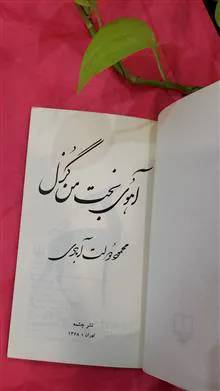 آهوی بخت من گُزل
محمود دولت آبادی
نشر چشمه
تهران، ۱۳۶۸